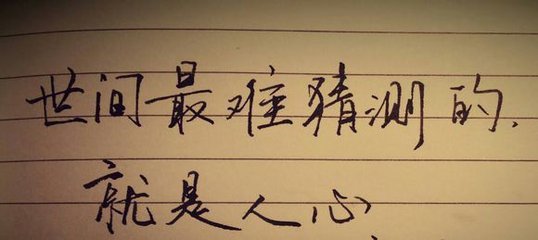 世间最难猜测的,
就是人心